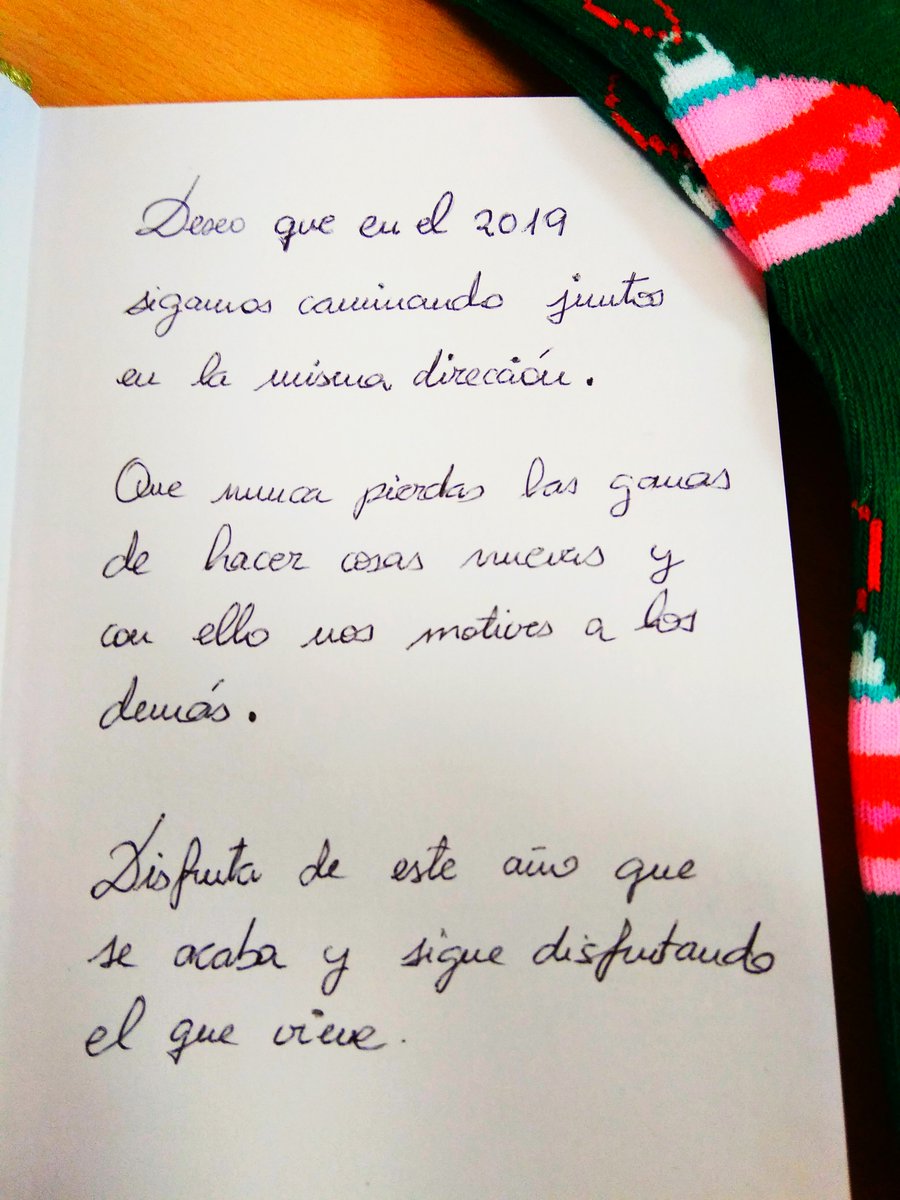 Deseo que en el 2019
sigamos caminando juntos
en la misma dirección.
Que nunca pierdas las ganas
de hacer cosas nuevas y
con ello nos motives a los
demás.
Disfruta de este año que
se acaba y sigue disfrutando
el que viene.